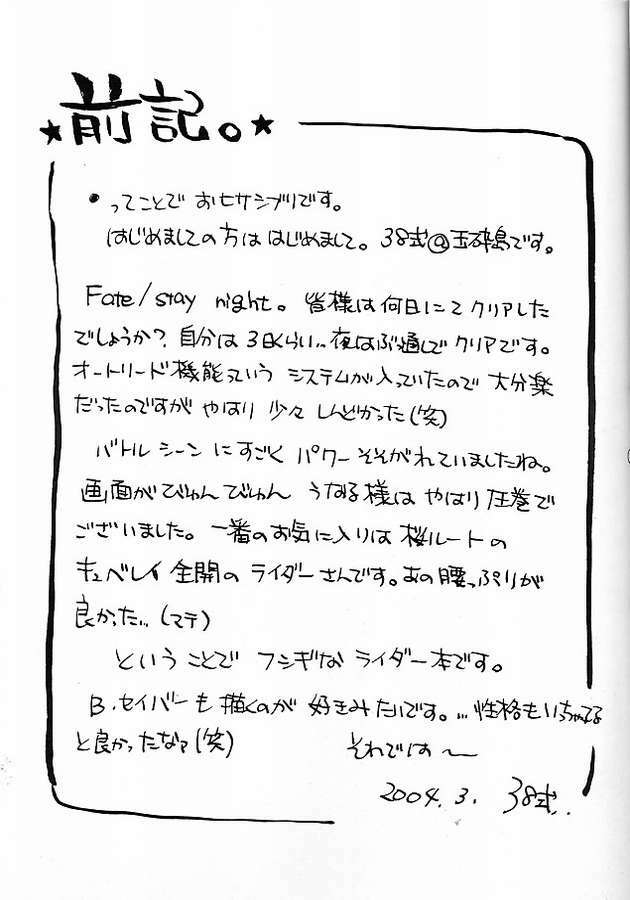 ★前記。★
・ってことで おセサシブリです。
はじめましての方は はじめまして。38式@玉砕島です。
Fate/stay night。皆様は何日にて クリアした
でしょうか？自分は3日くらい‥夜はぶっ通しで クリアです。
オートリード機能っていう システムが入っていたので 大分楽
だったのですが やはり 少々 しんどかった(笑)
バトルシーン にすごく パワーそそがれていましたね。
画面がびゅんびゅん うなる様は やはり圧巻で
ございました。一番のお気に入りは 桜ルートの
キュベレイ 全開の ライダーさんです。あの腰っぷりが
良かった‥(マテ)
ということで フシギな ライダー本です。
B.セイバーも描くのが 好きみたいです。…性格もいっちゃってる
と良かったなァ(笑)
それでは〜
2004.3. 38式‥